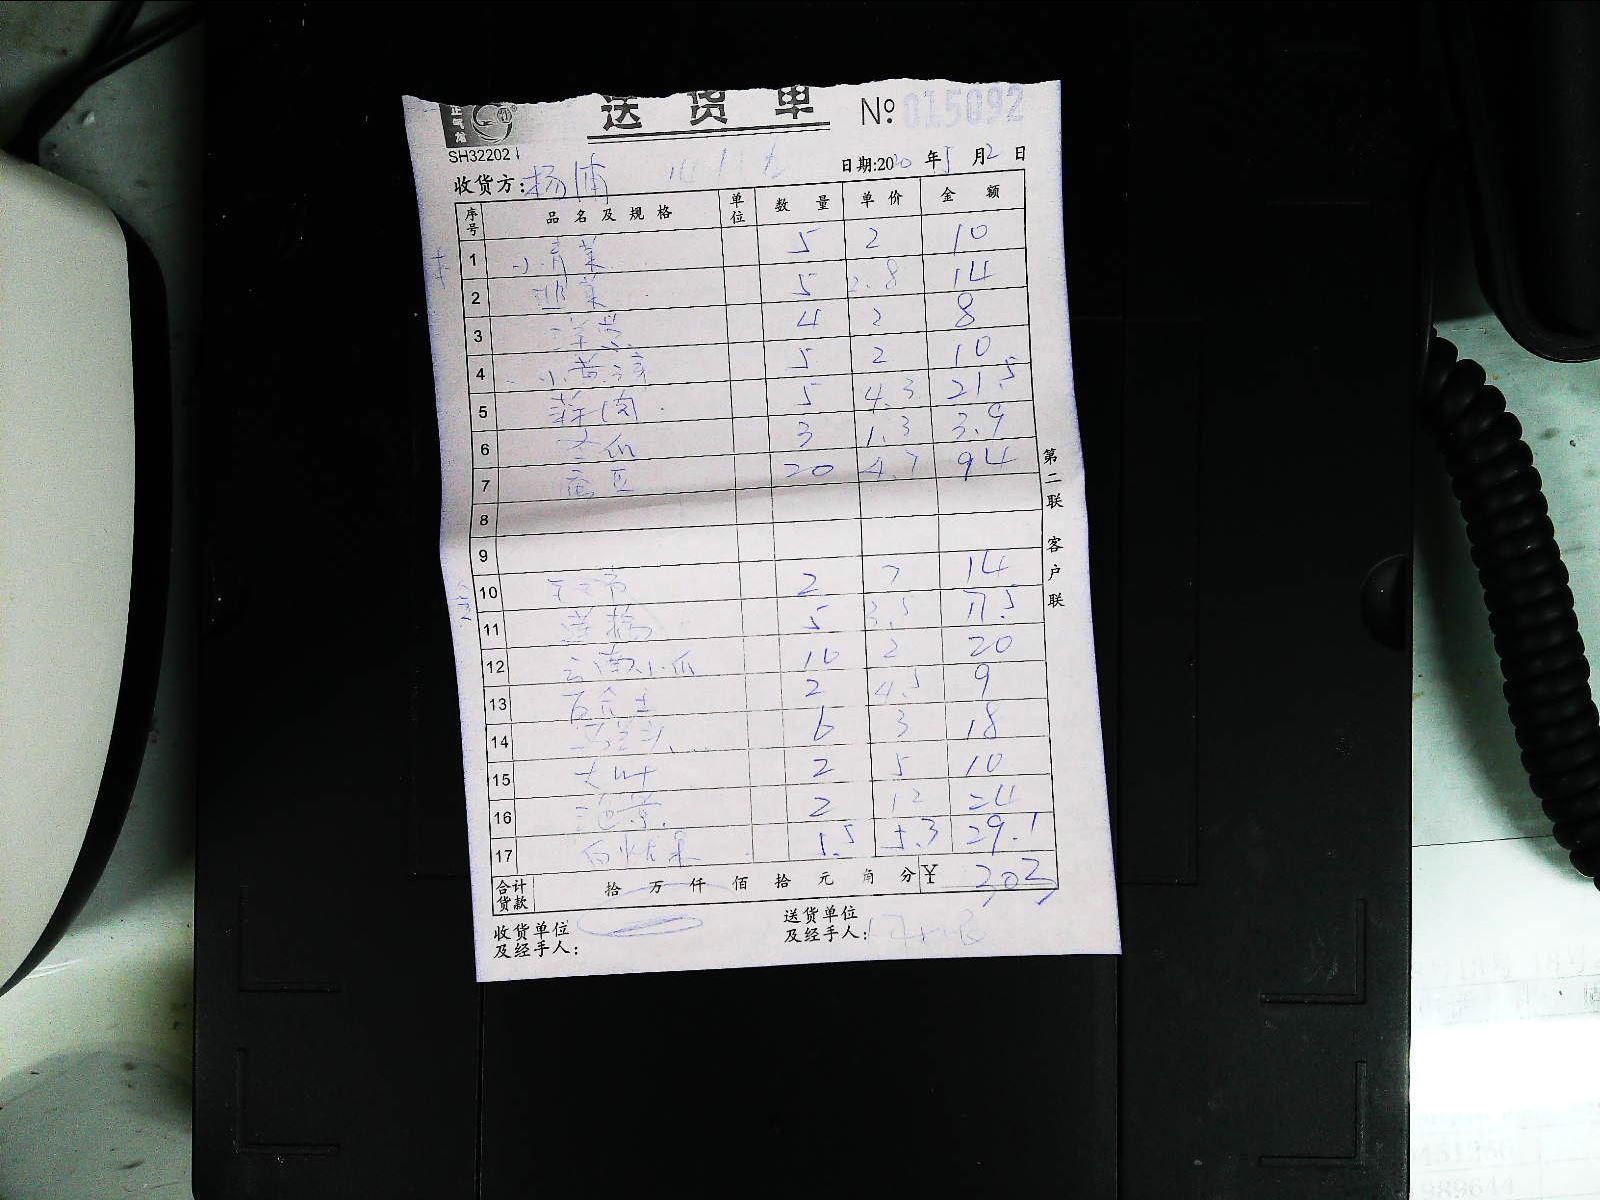 正气龙
送 货 单 №: 015092
SH32202
收货方: 杨浦 日期:2020 年 5 月 2 日
序号 品名及规格 单位 数量 单价 金额
1 小青菜 5 2 10
2 韭菜 5 2.8 14
3 洋葱 4 2 8
4 5 2 10
5 蒜肉 5 4.3 21.5
6 冬瓜 3 1.3 3.9
7 20 4.7 94
8
9
10 2 7 14
11 5 3.5 17.5
12 云南小瓜 10 2 20
13 2 4.5 9
14 马兰头 6 3 18
15 大叶 2 5 10
16 2 12 24
17 5.5 5.3 29.1
合计货款 拾 万 仟 佰 拾 元 角 分 ¥ 303
收货单位及经手人:
送货单位及经手人:
第二联 客户联